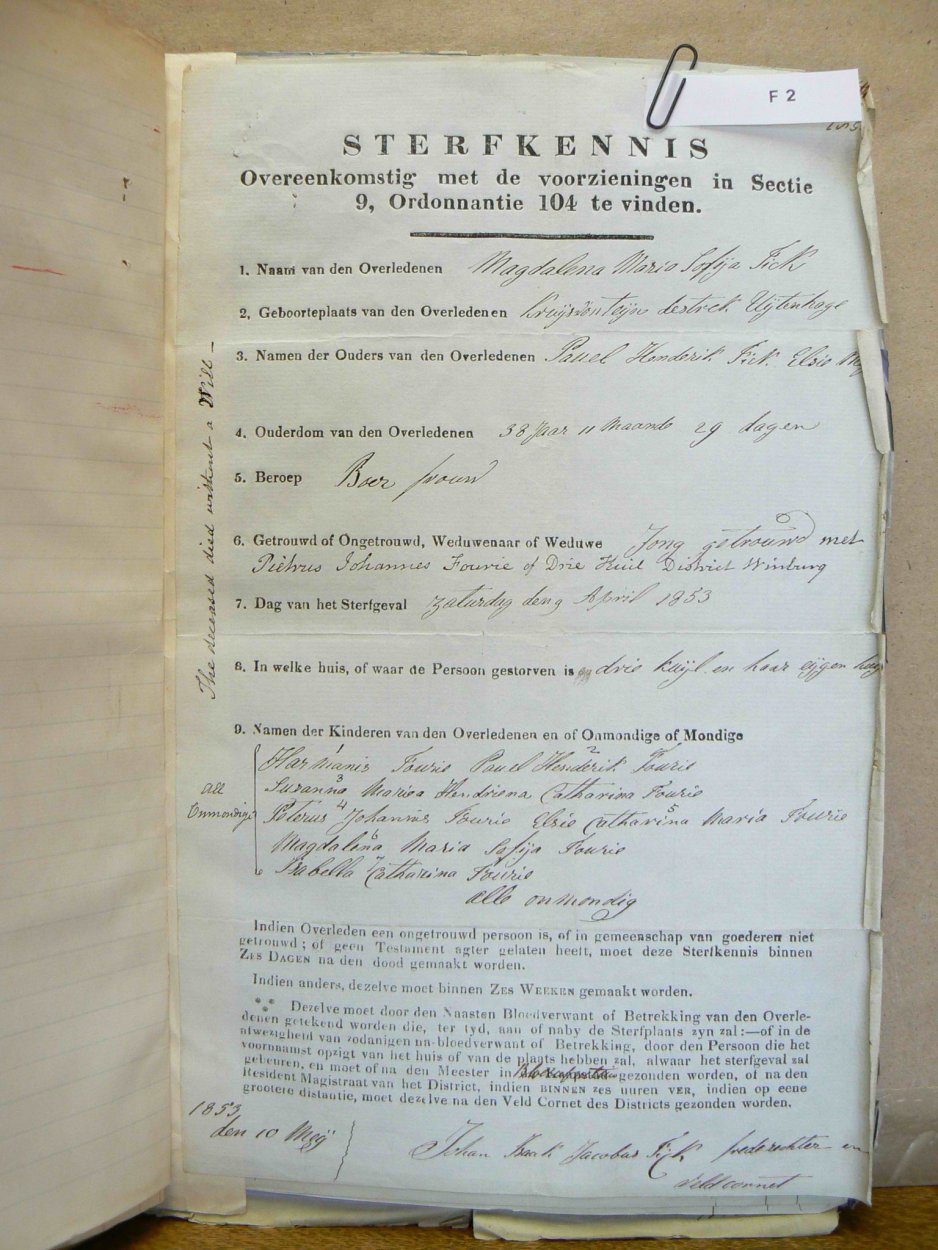 F 2
STERFKENNIS
Overeenkomstig met de voorzieningen in Sectie
9, Ordonnantie 104 te vinden.
1. Naam van den Overledenen Magdalena Maria Sofija Fick
2, Geboorteplaats van den Overledenen destrek Uijtenhage
3. Namen der Ouders van den Overledenen Pauel Henderik Fick. Elsie
4. Ouderdom van den Overledenen 38 Jaar 11 Maande 29 dagen
5. Beroep Boer frouw
6. Getrouwd of Ongetrouwd, Weduwenaar of Weduwe Jong getrouwd met
Pietrus Johannes Fourie of Drie Kuil District Winburg
7. Dag van het Sterfgeval zaturdag den 9 April 1853
8. In welke huis, of waar de Persoon gestorven is drie kuijl en haar eijgen
9. Namen der Kinderen van den Overledenen en of Onmondige of Mondige
Harmanis Fourie Pauel Henderik Fourie
1 2
Suzanna Mariea Hendriena Catharina Fourie
3
Peterus Johannis Fourie Elsie Catharina Maria Fourie
4 5
Magdalena Maria Sofija Fourie
6
Isabella Catharina Fourie
7
alle onmondig
All
Onmondige
The deceased died without a Will -
Indien Overleden een ongetrouwd persoon is, of in gemeenschap van goederen niet
getrouwd; of geen Testament agter gelaten heeft, moet deze Sterfkennis binnen
ZES DAGEN na den dood gemaakt worden.
Indien anders, dezelve moet binnen ZES WEEKEN gemaakt worden.
*** Dezelve moet door den Naasten Bloedverwant of Betrekking van den Overle-
denen getekend worden die, ter tyd, aan of naby de Sterfplaats zyn zal:—of in de
afwezigheid van zodanigen na-bloedverwant of Betrekking, door den Persoon die het
voornaamst opzigt van het huis of van de plaats hebben zal, alwaar het sterfgeval zal
gebeuren, en moet of na den Meester in gezonden worden, of na den
Resident Magistraat van het District, indien BINNEN ZES UUREN VER, indien op eene
grootere distantie, moet dezelve na den Veld Cornet des Districts gezonden worden.
1853
den 10 Meij
Johan Isaak Jacobus Fick frederechter en
Veldcornet